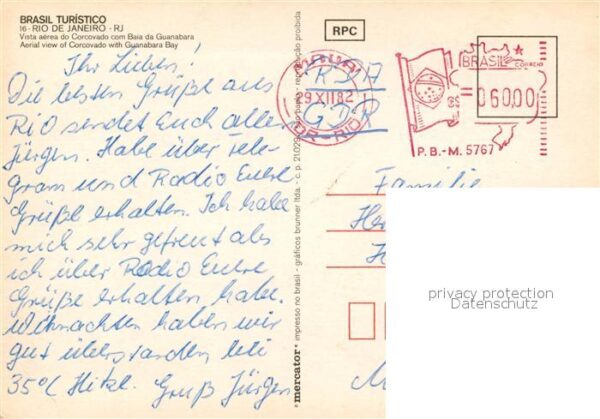 BRASIL TURÍSTICO
16 - RIO DE JANEIRO - RJ
Vista aérea do Corcovado com Baía da Guanabara
Aerial view of Corcovado with Guanabara Bay
Ihr Lieben!
Die besten Grüße aus
Rio sendet Euch allen
Jürgen. Habe über Tele-
gram und Radio Eure
Grüße erhalten. Ich habe
mich sehr gefreut als
ich über Radio Eure
Grüße erhalten habe.
Weihnachten haben wir
gut überstanden bei
35°C Hitze. Gruß Jürgen
mercator
impresso no brasil - gráficos brunner ltda. - c. p.
reprodução proibida
RPC
29 XII 82
GDR
BRASIL CORREIO
06000
P.B.-M. 5767
Familie
privacy protection
Datenschutz